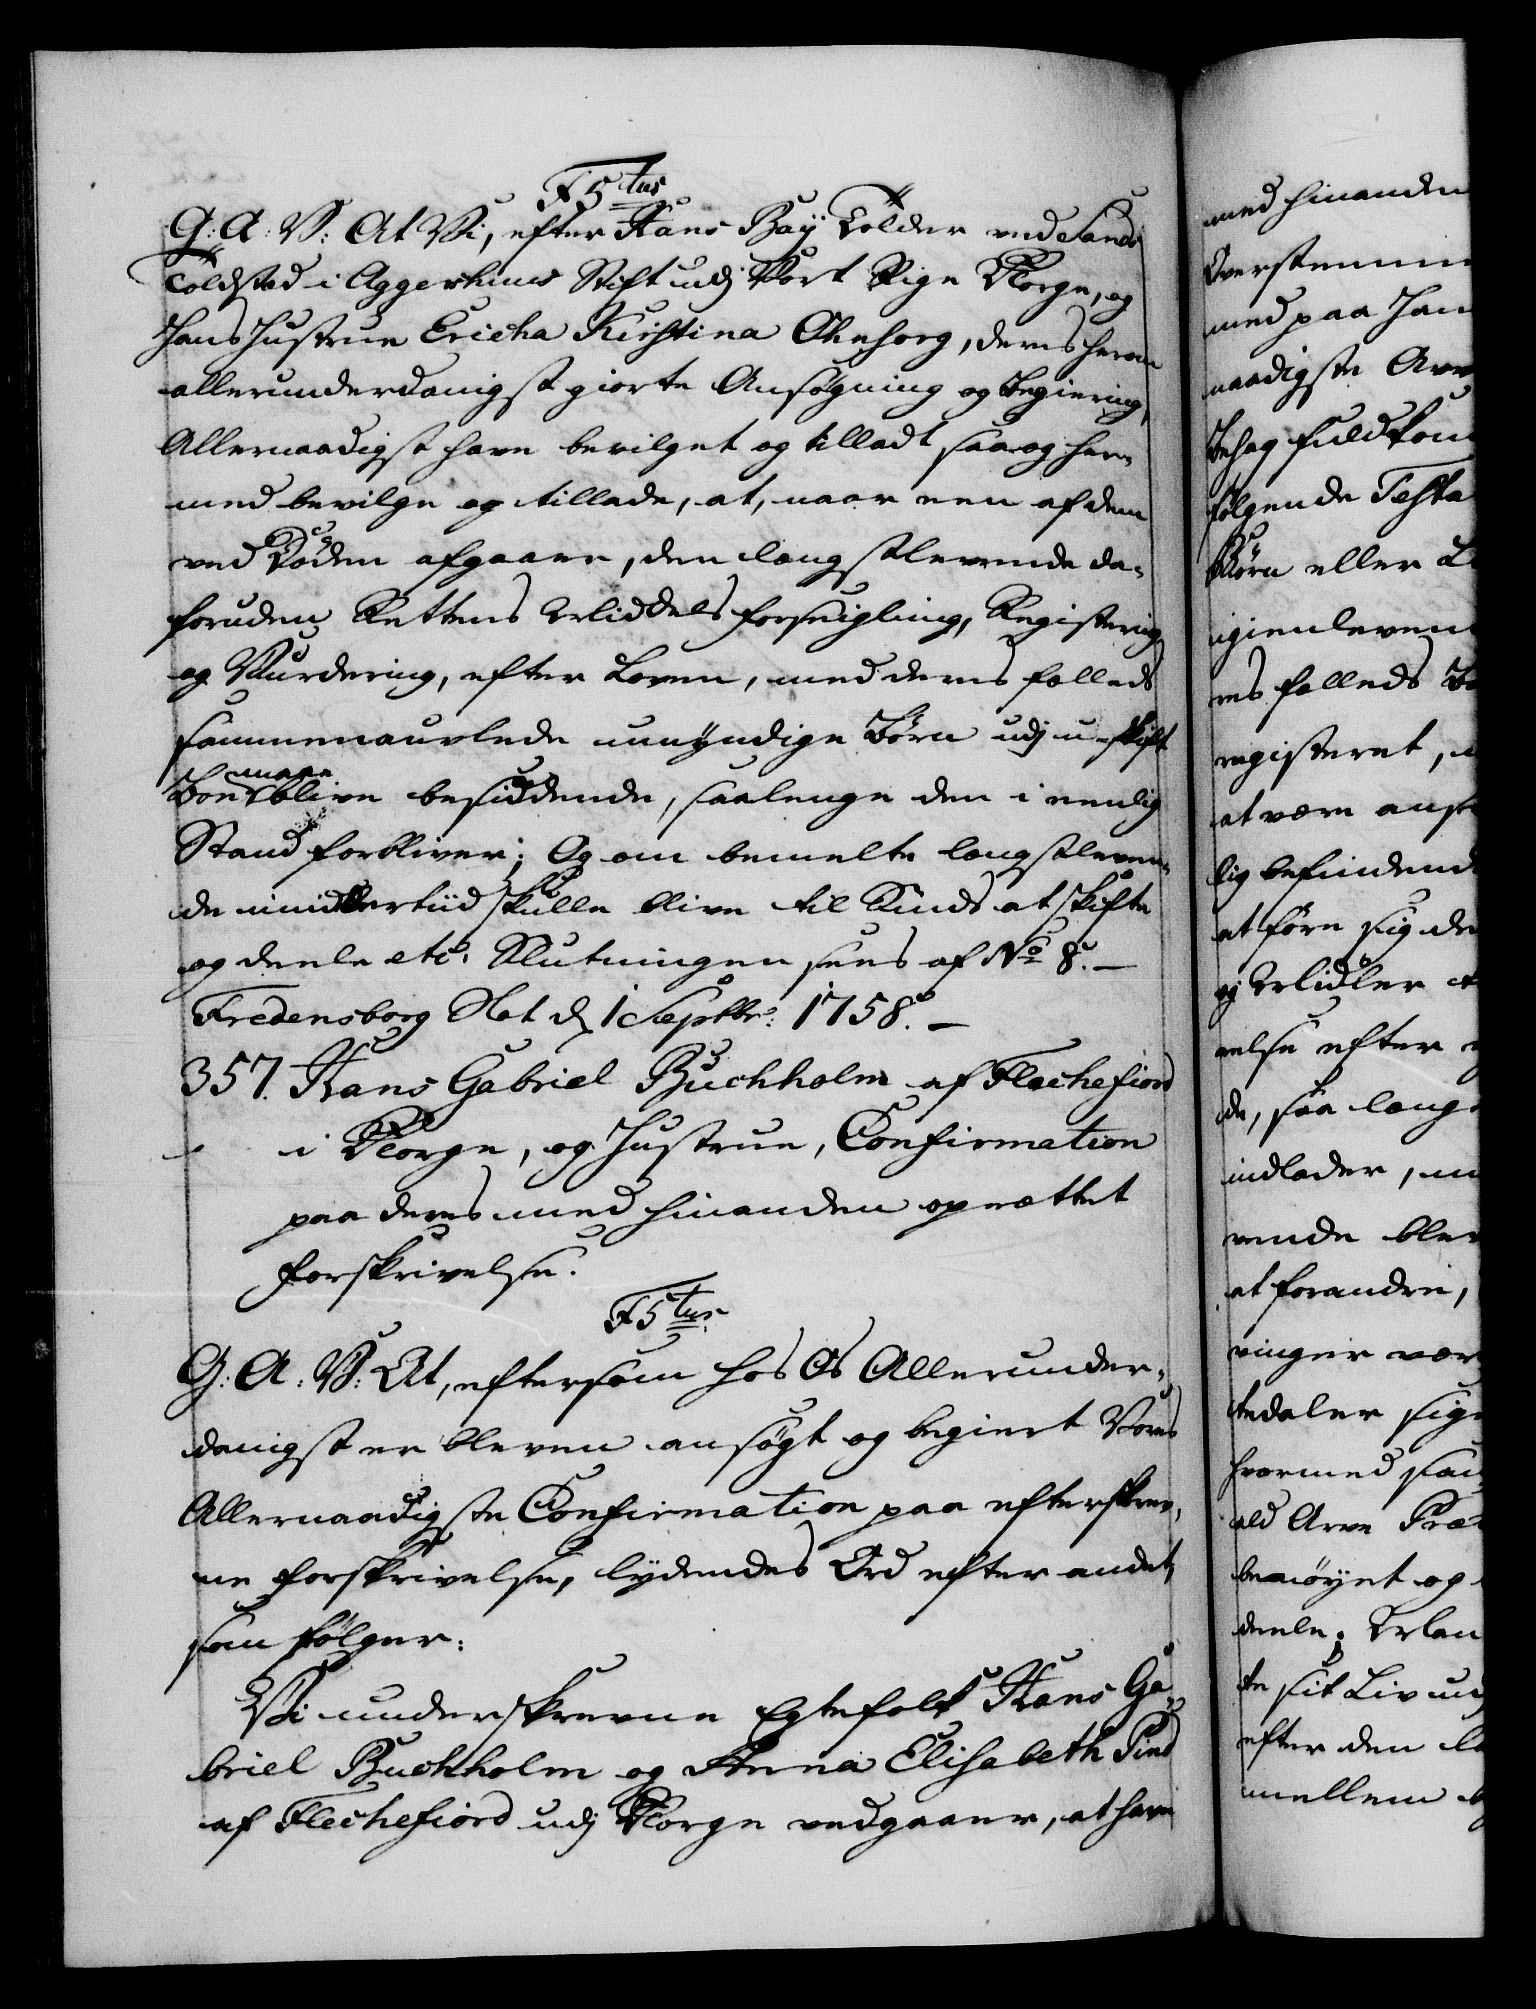 F5tus
G: A: V: At Vi, efter Hans Baÿ Tolder ved Sands
Toldsted i Aggerhuus Stift udj Vort Rige Norge, og
Hans Hustrue Ericha Kirstina Ohnsorg, deres herom
allerunderdanigst giorte Ansøgning og Begiering,
Allernaadigst have bevilget og tilladt, saa og her-
med bevilge og tillade, at, naar een af dem
ved Døden afgaaer, den længstlevende da-
foruden Rettens Middels Forseigling, Registering
og Vurdering, efter Loven, med deres fælleds
sammenavlede umyndige Børn udj u-skift
Boe maae blive besiddende, saalenge den i eenlig
Stand forbliver; Og om bemelte længstleven-
de imidlertiid skulle blive til Sinds at skifte
og deele etc: Slutningen sees af No 8. —
Fredensborg Slot d. 1 Septbr: 1758. —
357. Hans Gabriel Buchholm af Flechefiord
i Norge, og Hustrue, Confirmation
paa deres med hinanden oprættet
Forskrivelse.
F5tus.
G: A: V: At, eftersom hos Os Allerunder-
danigst er bleven ansøgt og begiert Vores
Allernaadigste Confirmation paa efterskrev-
ne Forskrivelse, lydendes Ord efter andet,
som følger:
Vi underskrevne Egtefolk Hans Ga-
briel Buchholm og Anna Elisabeth Pind
af Flechefiord udj Norge vedgaaer, at have
med hinanden
Overstemme
med paa
naadigste
Behag fuldkom
følgende Testa
Børn eller
igienleven
res fælleds
registeret,
at være
lig befindend
at føre sig
og Midler
velse efter
de, saa længe
indlader,
vende blev
at forandre,
ringer vær
tedaler
hvormed
ald Arve
benøyet og
deele;
te sit Liv
efter den
imellem